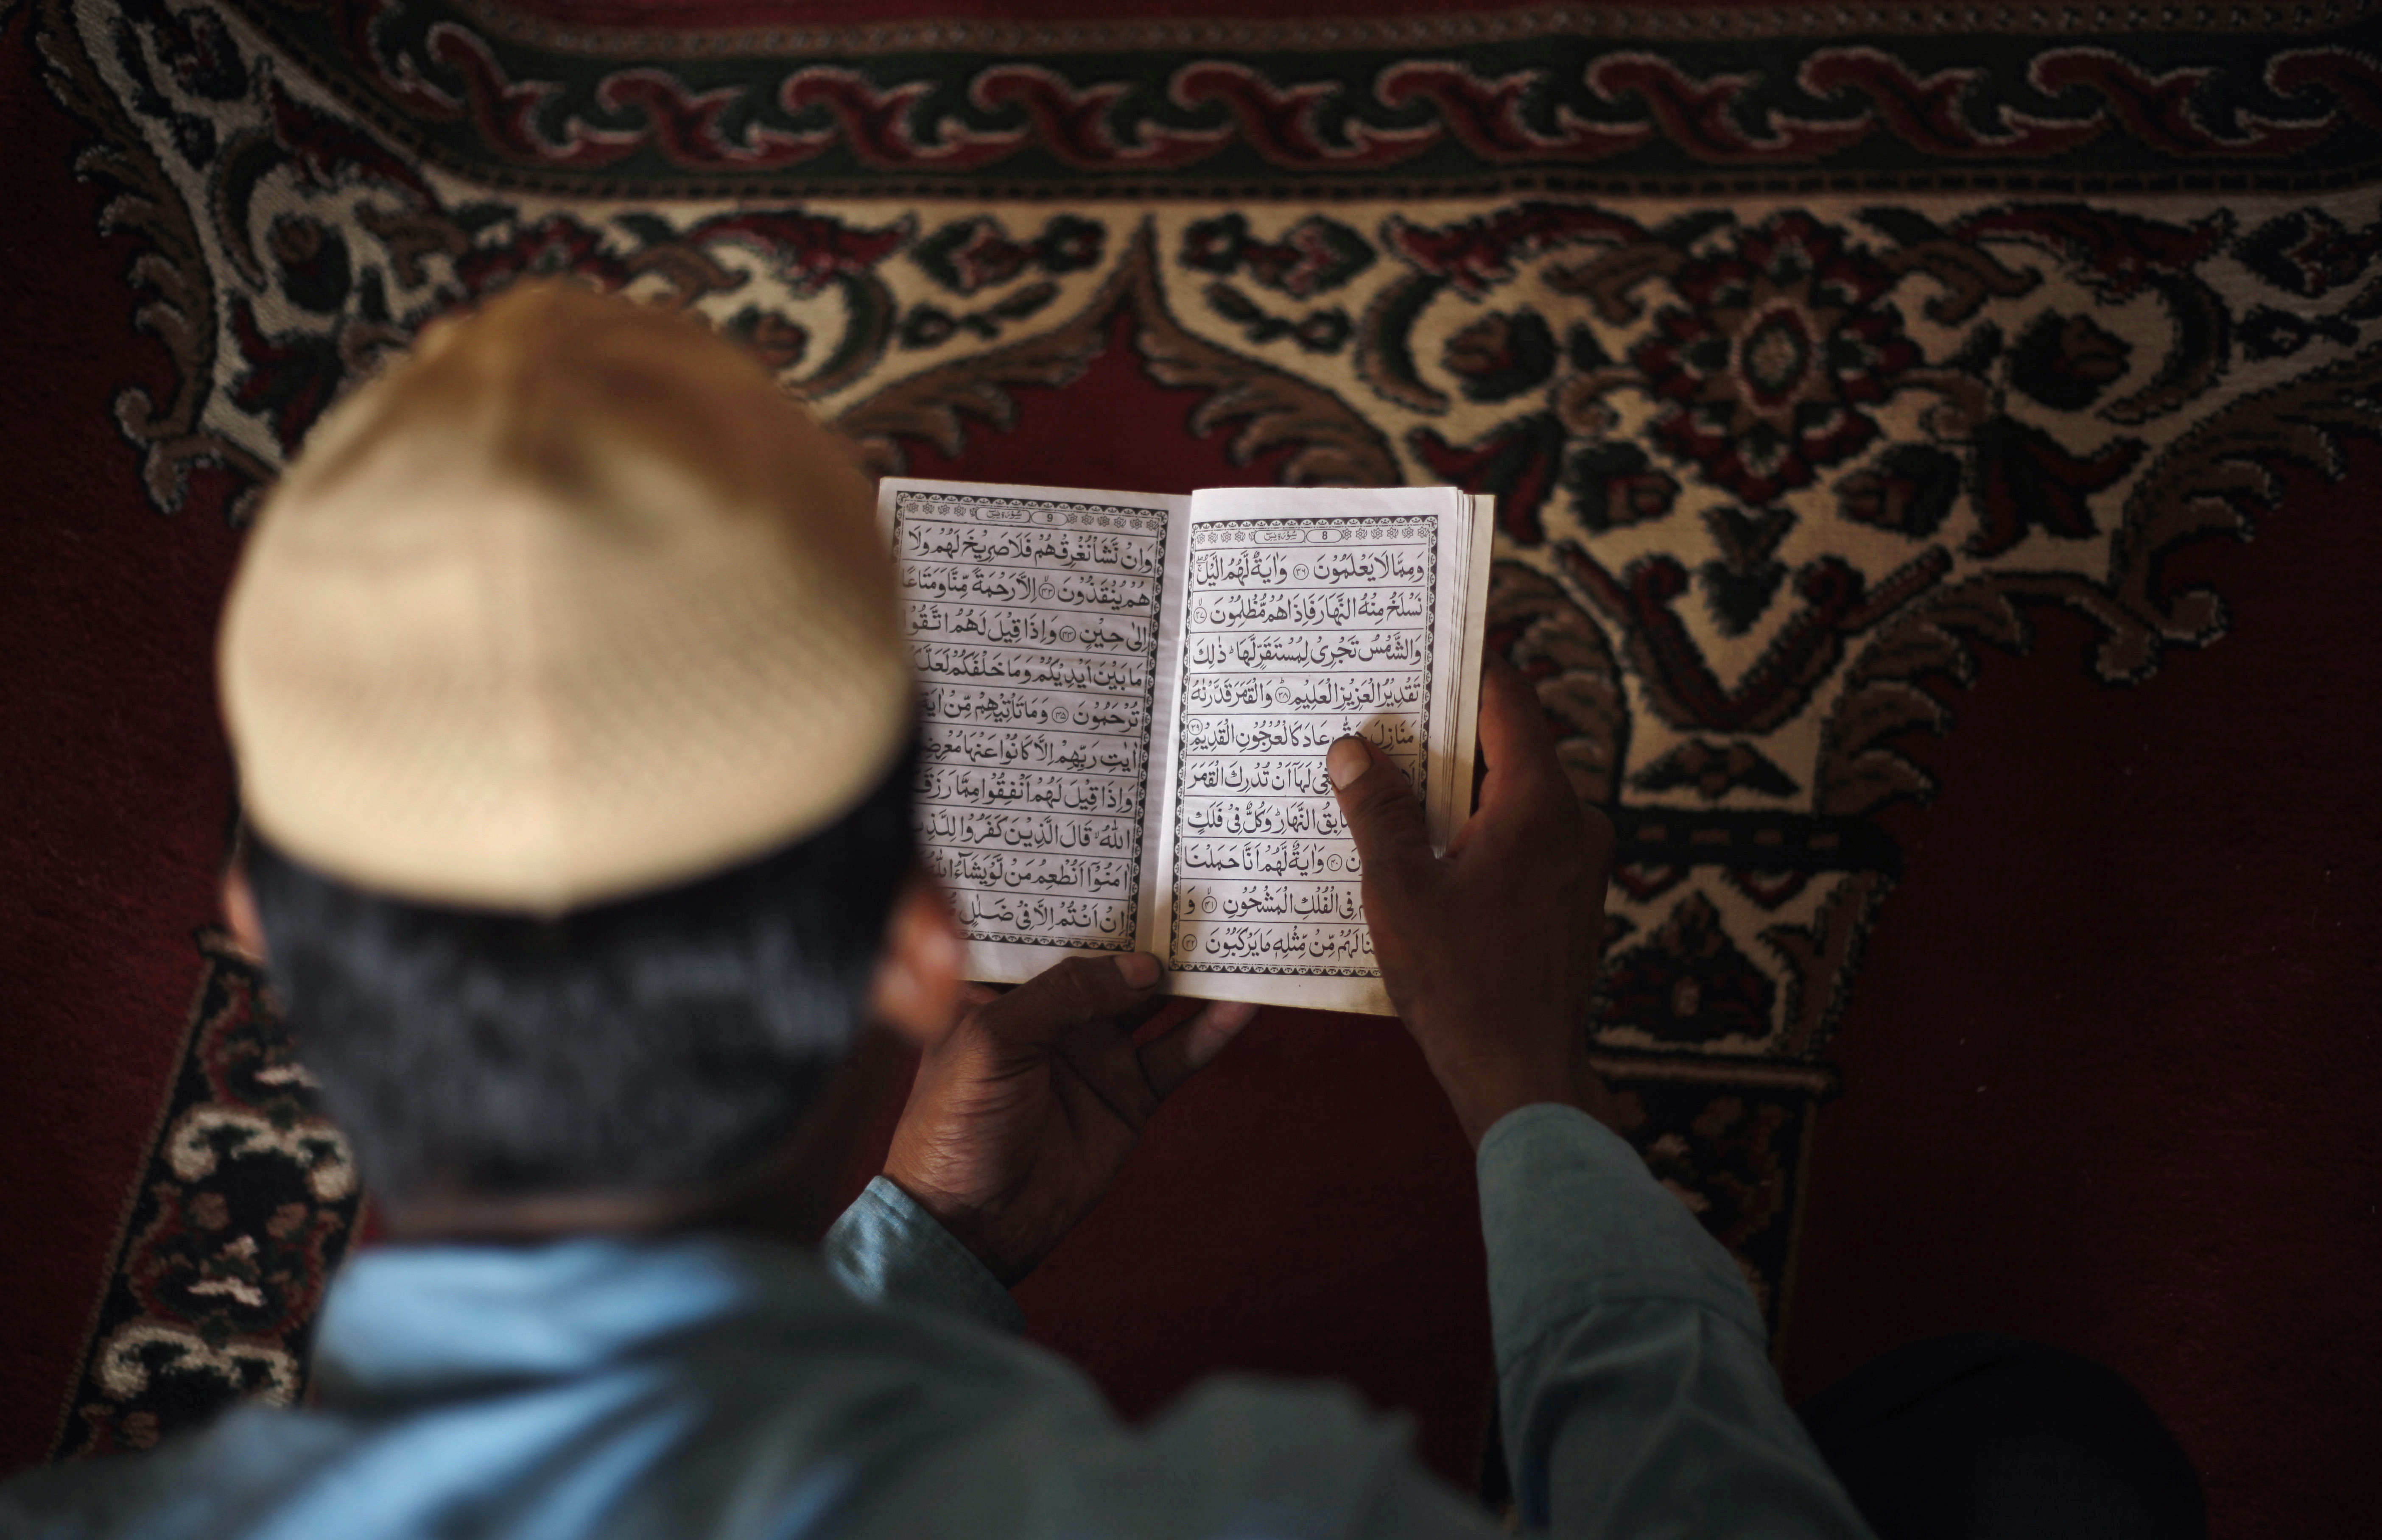 8 سُوْرَة يٰسٓ
وَمِمَّا لَا يَعْلَمُوْنَ ۝۳۶ وَاٰيَةٌ لَّهُمُ الَّيْلُ ۖۚ
نَسْلَخُ مِنْهُ النَّهَارَ فَاِذَا هُمْ مُّظْلِمُوْنَ ۝۳۷ۙ
وَالشَّمْسُ تَجْرِىْ لِمُسْتَقَرٍّ لَّهَا ؕ ذٰلِكَ
تَقْدِيْرُ الْعَزِيْزِ الْعَلِيْمِ ۝۳۸ؕ وَالْقَمَرَ قَدَّرْنٰهُ
مَنَازِلَ عَادَ كَالْعُرْجُوْنِ الْقَدِيْمِ ۝۳۹
لَهَاۤ اَنْ تُدْرِكَ الْقَمَرَ
النَّهَارِ ؕ وَكُلٌّ فِىْ فَلَكٍ
۝۴۰ وَاٰيَةٌ لَّهُمْ اَنَّا حَمَلْنَا
فِى الْفُلْكِ الْمَشْحُوْنِ ۝۴۱ۙ وَ
لَهُمْ مِّنْ مِّثْلِهٖ مَا يَرْكَبُوْنَ ۝۴۲
9 سُوْرَة يٰسٓ
وَاِنْ نَّشَاْ نُغْرِقْهُمْ فَلَا صَرِيْخَ لَهُمْ وَلَا
هُمْ يُنْقَذُوْنَ ۝۴۳ۙ اِلَّا رَحْمَةً مِّنَّا وَمَتَاعًا
اِلٰى حِيْنٍ ۝۴۴ وَاِذَا قِيْلَ لَهُمُ اتَّقُوْا
مَا بَيْنَ اَيْدِيْكُمْ وَمَا خَلْفَكُمْ
تُرْحَمُوْنَ ۝۴۵ وَمَا تَاْتِيْهِمْ مِّنْ اٰيَةٍ
اٰيٰتِ رَبِّهِمْ اِلَّا كَانُوْا عَنْهَا
وَاِذَا قِيْلَ لَهُمْ اَنْفِقُوْا مِمَّا
اللّٰهُ ۙ قَالَ الَّذِيْنَ كَفَرُوْا
اٰمَنُوْۤا اَنُطْعِمُ مَنْ لَّوْ يَشَآءُ اللّٰهُ
اِنْ اَنْتُمْ اِلَّا فِىْ ضَلٰلٍ